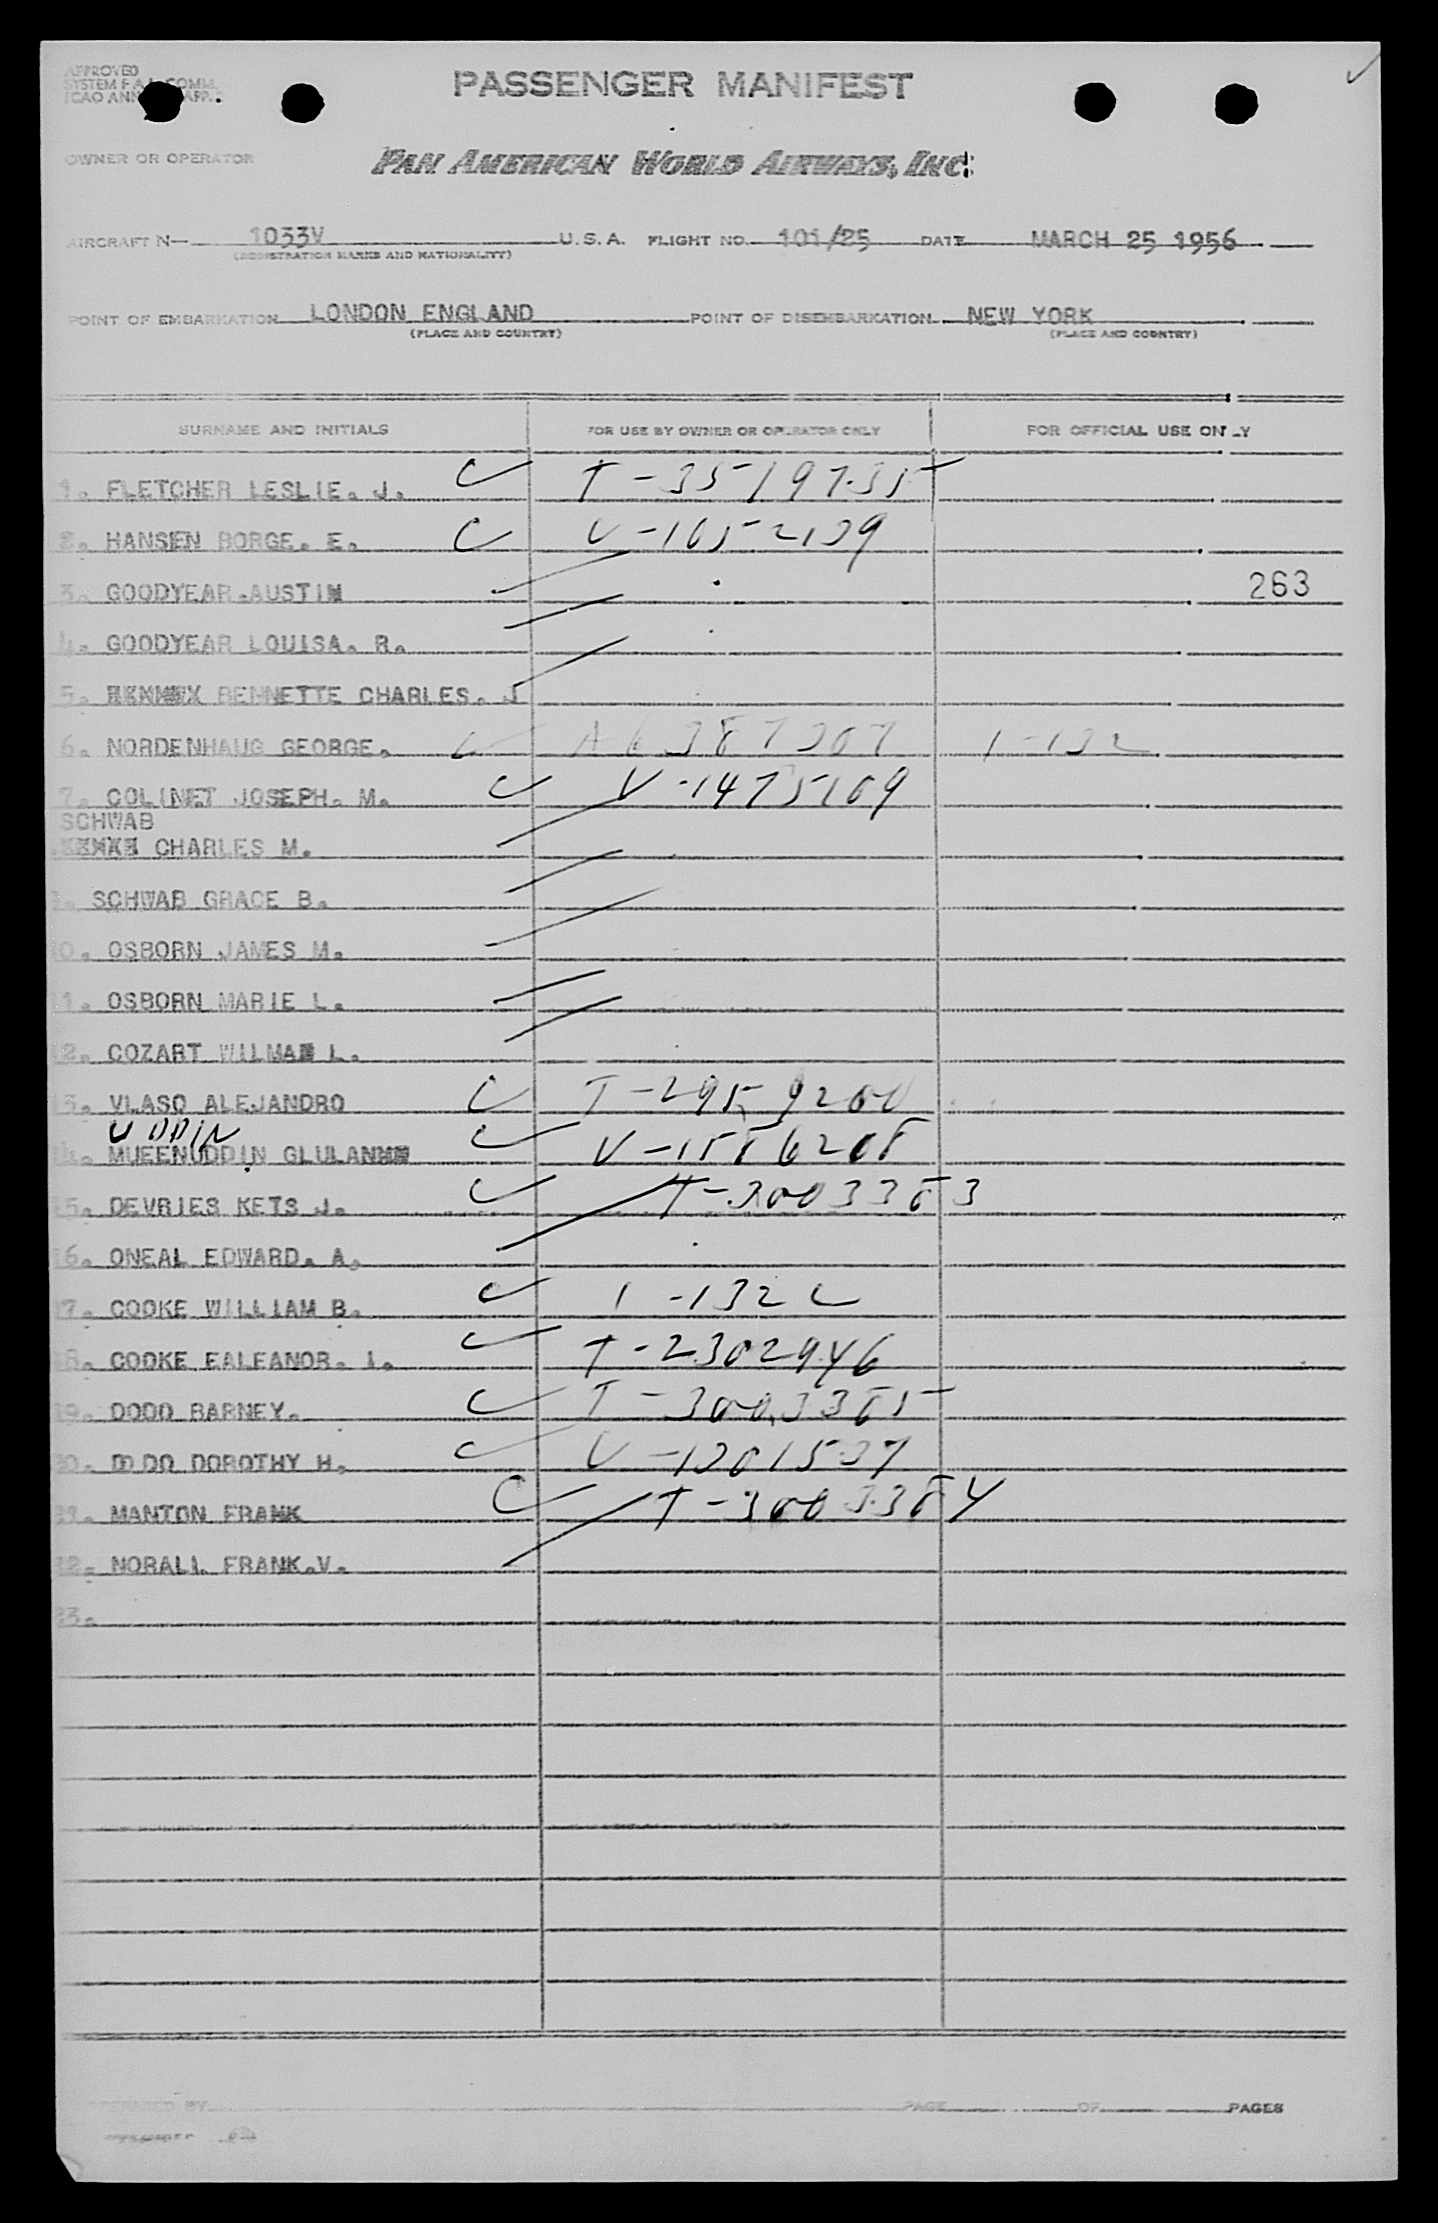 APPROVED
SYSTEM F A L COMM.
ICAO ANN APP.
PASSENGER MANIFEST
OWNER OR OPERATOR PAN AMERICAN WORLD AIRWAYS, INC.
AIRCRAFT N— 1033V U.S.A. FLIGHT NO. 101/25 DATE MARCH 25 1956
(REGISTRATION MARKS AND NATIONALITY)
POINT OF EMBARKATION LONDON ENGLAND POINT OF DISEMBARKATION NEW YORK
(PLACE AND COUNTRY) (PLACE AND COUNTRY)
SURNAME AND INITIALS FOR USE BY OWNER OR OPERATOR ONLY FOR OFFICIAL USE ONLY
1. FLETCHER LESLIE. J. T-3519735
2. HANSEN BORGE. E. V-1652139
3. GOODYEAR.AUSTIN 263
4. GOODYEAR LOUISA. R.
5. BENNETTE CHARLES. J
6. NORDENHAUG GEORGE. A6387307 1-132
7. COLINET JOSEPH. M. V-1475109
SCHWAB
CHARLES M.
9. SCHWAB GRACE B.
10. OSBORN JAMES M.
11. OSBORN MARIE L.
12. COZART WILMA L.
13. VLASO ALEJANDRO T-2959200
UDDIN
14. MUEENUDDIN GLULAN V-1586208
15. DEVRIES KETS J. T-3003383
16. ONEAL EDWARD. A.
17. COOKE WILLIAM B. 1-132L
18. COOKE EALEANOR. I. T-2302946
19. DODD BARNEY. T-3003385
20. DODD DOROTHY H. V-1201537
21. MANTON FRANK T-3003384
22. NORALL FRANK.V.
23.
PREPARED BY PAGE OF PAGES